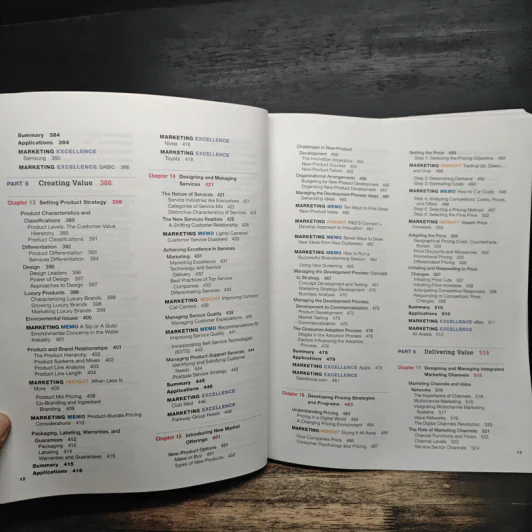 Summary 384
Applications 384
MARKETING EXCELLENCE
Samsung 385
MARKETING EXCELLENCE SABIC 386
PART 5 Creating Value 388
Chapter 13 Setting Product Strategy 389
Product Characteristics and
Classifications 389
Product Levels: The Customer-Value
Hierarchy 389
Product Classifications 391
Differentiation 392
Product Differentiation 393
Services Differentiation 394
Design 396
Design Leaders 396
Power of Design 397
Approaches to Design 397
Luxury Products 398
Characterizing Luxury Brands 398
Growing Luxury Brands 398
Marketing Luxury Brands 398
Environmental Issues 400
MARKETING MEMO A Sip or A Gulp:
Environmental Concerns in the Water
Industry 401
Product and Brand Relationships 401
The Product Hierarchy 402
Product Systems and Mixes 402
Product Line Analysis 403
Product Line Length 404
MARKETING INSIGHT When Less Is
More 405
Product Mix Pricing 408
Co-Branding and Ingredient
Branding 409
MARKETING MEMO Product-Bundle Pricing
Considerations 410
Packaging, Labeling, Warranties, and
Guarantees 412
Packaging 412
Labeling 414
Warranties and Guarantees 415
Summary 415
Applications 416
12
MARKETING EXCELLENCE
Nivea 416
MARKETING EXCELLENCE
Toyota 418
Chapter 14 Designing and Managing
Services 421
The Nature of Services 421
Service Industries Are Everywhere 421
Categories of Service Mix 422
Distinctive Characteristics of Services 424
The New Services Realities 428
A Shifting Customer Relationship 428
MARKETING MEMO Lights! Cameras!
Customer Service Disasters! 430
Achieving Excellence in Services
Marketing 431
Marketing Excellence 431
Technology and Service
Delivery 432
Best Practices of Top Service
Companies 433
Differentiating Services 435
MARKETING INSIGHT Improving Company
Call Centers 436
Managing Service Quality 439
Managing Customer Expectations
MARKETING MEMO Recommendations for
Improving Service Quality 441
Incorporating Self-Service Technologies
(SSTS) 443
Managing Product-Support Services 444
Identifying and Satisfying Customer
Needs 444
Postsale Service Strategy
Summary 445
Applications 446
MARKETING EXCELLENCE
Club Med 446
MARKETING EXCELLENCE
Parkway Group Hotels
Chapter 15 Introducing New Market
Offerings 451
New-Product Options 451
Make or Buy 451
Types of New Products 452
Challenges in New-Product
Development
The Innovation Imperative
New-Product Success
New-Product Failure
Organizational Arrangements
Budgeting for New-Product Development
Organizing New-Product Development
Managing the Development Process: Ideas
Generating Ideas
MARKETING MEMO Ten Ways to Find Great
New-Product Ideas
MARKETING INSIGHT P&G'S Connect +
Develop Approach to Innovation
MARKETING MEMO Seven Ways to Draw
New Ideas from Your Customers
MARKETING MEMO How to Run a
Successful Brainstorming Session
Using Idea Screening
Managing the Development Process: Concept
to Strategy
Concept Development and Testing
Marketing Strategy Development
Business Analysis
Managing the Development Process:
Development to Commercialization
Product Development
Market Testing
Commercialization
The Consumer-Adoption Process
Stages in the Adoption Process
Factors Influencing the Adoption
Process
Summary
Applications
MARKETING EXCELLENCE Apple
MARKETING EXCELLENCE
Salesforce.com
Chapter 16 Developing Pricing Strategies
and Programs 483
Understanding Pricing 483
Pricing in a Digital World
A Changing Pricing Environment
MARKETING INSIGHT Giving It All Away
How Companies Price
Consumer Psychology and Pricing
Setting the Price
Step 1: Selecting the Pricing Objective
MARKETING INSIGHT Trading Up, Down,
and Over
Step 2: Determining Demand
Step 3: Estimating Costs
MARKETING MEMO How to Cut Costs
Step 4: Analyzing Competitors' Costs, Prices,
and Offers
Step 5: Selecting a Pricing Method
Step 6: Selecting the Final Price
MARKETING INSIGHT Stealth Price
Increases
Adapting the Price
Geographical Pricing (Cash, Countertrade,
Barter)
Price Discounts and Allowances
Promotional Pricing
Differentiated Pricing
Initiating and Responding to Price
Changes
Initiating Price Cuts
Initiating Price Increases
Anticipating Competitive Responses
Responding to Competitors' Price
Changes
Summary 510
Applications
MARKETING EXCELLENCE eBay
MARKETING EXCELLENCE
Air Arabia
PART 6 Delivering Value
Chapter 17 Designing and Managing Integrated
Marketing Channels
Marketing Channels and Value
Networks
The Importance of Channels
Multichannel Marketing
Integrating Multichannel Marketing
Systems
Value Networks
The Digital Channels Revolution
The Role of Marketing Channels
Channel Functions and Flows
Channel Levels
Service Sector Channels
13